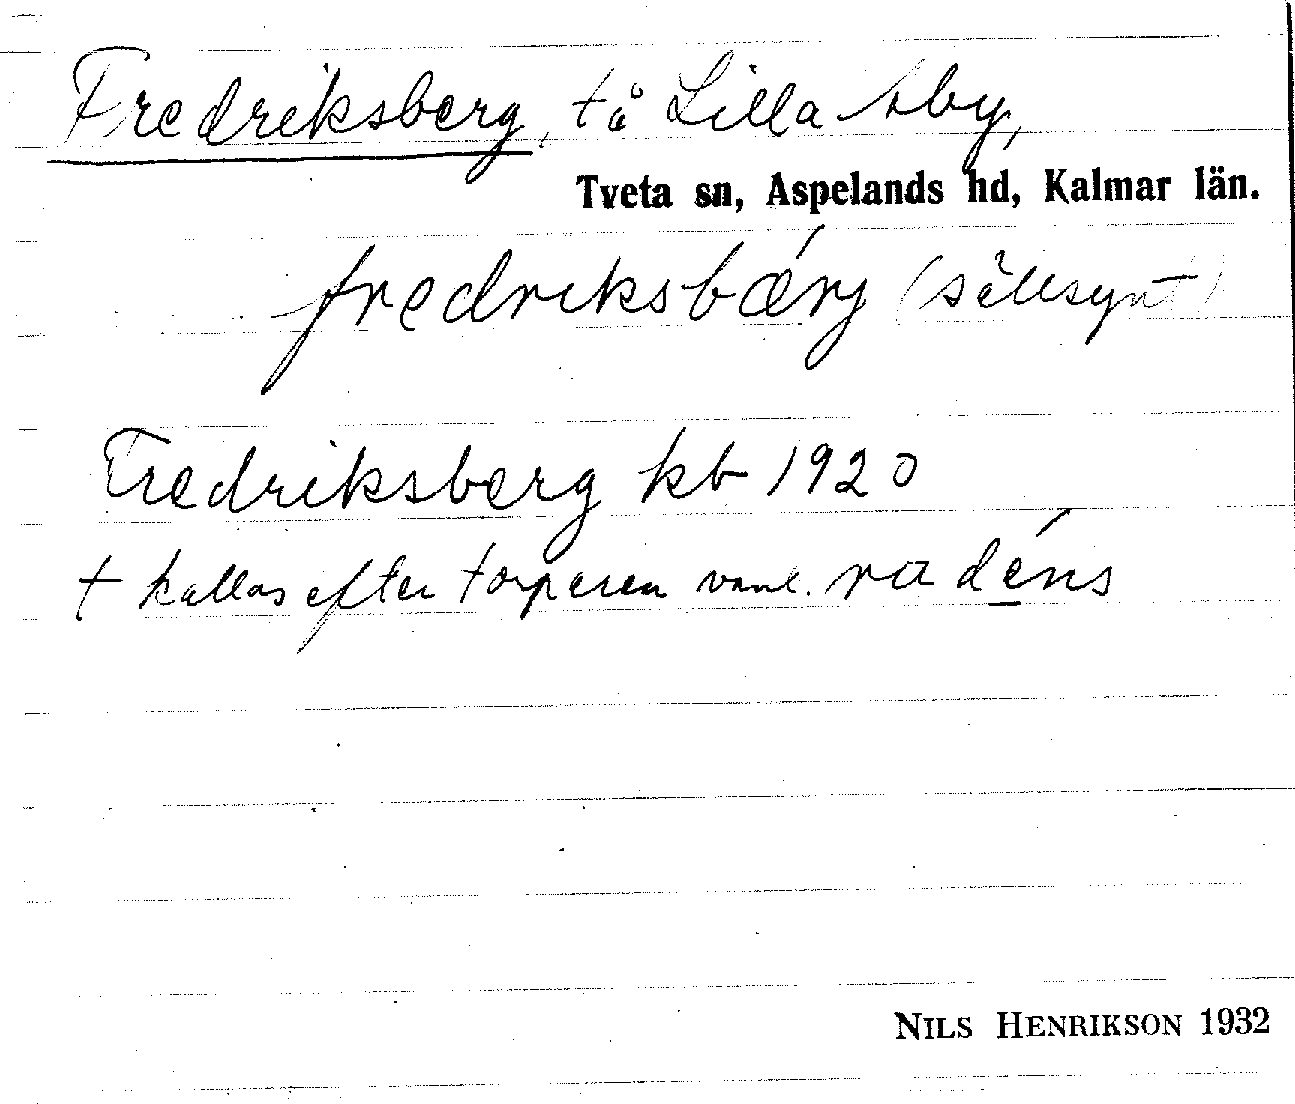 Fredriksberg, t å Lilla Aby,
Tveta sn, Aspelands hd, Kalmar län.
fredriksbærj (sällsynt)
Fredriksberg kb 1920
t kallas efter torparen vanl. radéns
NILS HENRIKSON 1932